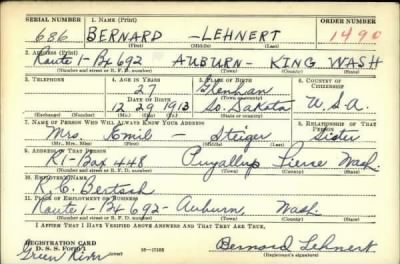 SERIAL NUMBER 1. NAME (Print) ORDER NUMBER
686 BERNARD - LEHNERT 1490
(First) (Middle) (Last)
2. ADDRESS (Print)
Route 1-Bx 692 AUBURN - KING WASH
(Number and street or R. F. D. number) (Town) (County) (State)
3. TELEPHONE 4. AGE IN YEARS 5. PLACE OF BIRTH 6. COUNTRY OF CITIZENSHIP
27
DATE OF BIRTH (Town or county)
12 29 1913 So. Dakota U.S.A.
(Exchange) (Number) (Mo.) (Day) (Yr.) (State or country)
7. NAME OF PERSON WHO WILL ALWAYS KNOW YOUR ADDRESS 8. RELATIONSHIP OF THAT PERSON
Mrs. Emil - Steiger Sister
(Mr., Mrs., Miss) (First) (Middle) (Last)
9. ADDRESS OF THAT PERSON
R1-Box 448 Puyallup Pierce Wash.
(Number and street or R. F. D. number) (Town) (County) (State)
10. EMPLOYER'S NAME
R. C. Bertsch
11. PLACE OF EMPLOYMENT OR BUSINESS
Route 1-Bx 692- Auburn, Wash
(Number and street or R. F. D. number) (Town) (County) (State)
I AFFIRM THAT I HAVE VERIFIED ABOVE ANSWERS AND THAT THEY ARE TRUE.
REGISTRATION CARD
D. S. S. Form 1 16-17105 Bernard Lehnert
Green River (Registrant's signature)